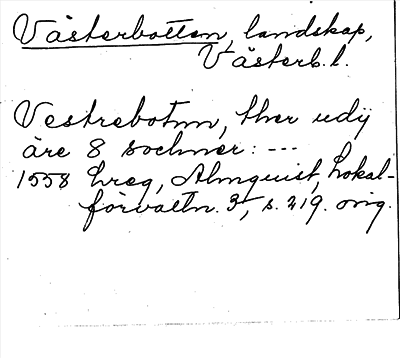 Västerbotten, landskap,
Västerb. l.
Vestrebotnn, ther udij
äre 8 sochner: ---
1558 Lreg, Almquist, Lokal-
förvaltn. 3, s. 219. orig.